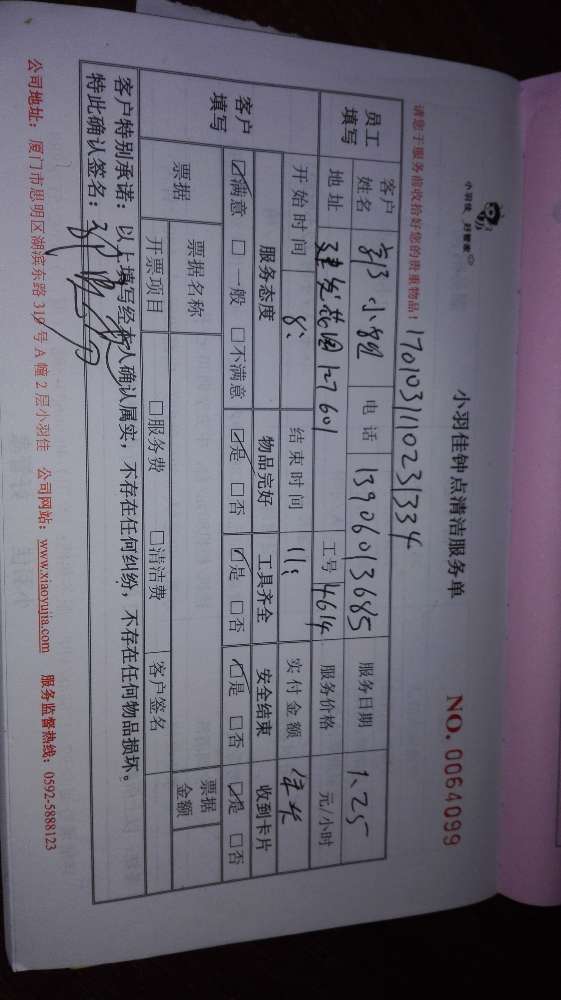 小羽佳 好管家
小羽佳钟点清洁服务单
NO. 0064099
请您于服务前收拾好您的贵重物品!
1701031110231334
员工填写
客户姓名 郭小姐 电话 13906013685 服务日期 1.25
地址 建发花园127601 工号 4614 服务价格 元/小时
开始时间 8: 结束时间 11: 实付金额
客户填写
服务态度 物品完好 工具齐全 安全结束 收到卡片
☑满意 □一般 □不满意 ☑是 □否 ☑是 □否 ☑是 □否 ☑是 □否
票据 票据名称 票据金额
开票项目 □服务费 □清洁费 客户签名
客户特别承诺:以上填写经本人确认属实,不存在任何纠纷,不存在任何物品损坏。
特此确认签名:
公司地址:厦门市思明区湖滨东路319号A幢2层小羽佳 公司网站:www.xiaoyujia.com 服务监督热线:0592-5888123